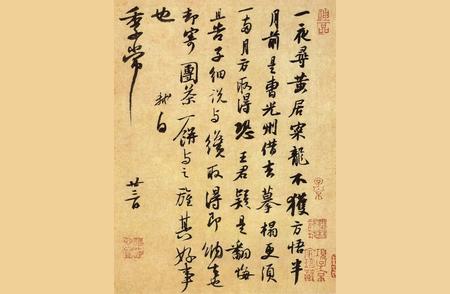 一夜尋黃居寀龍不獲方悟半
月前是曹光州借去摹榻更須
一兩月方取得恐王君疑是翻悔
且告子細說與纔取得即納去也
却寄團茶一餅與之旌其好事
也 軾白
季常 廿三日